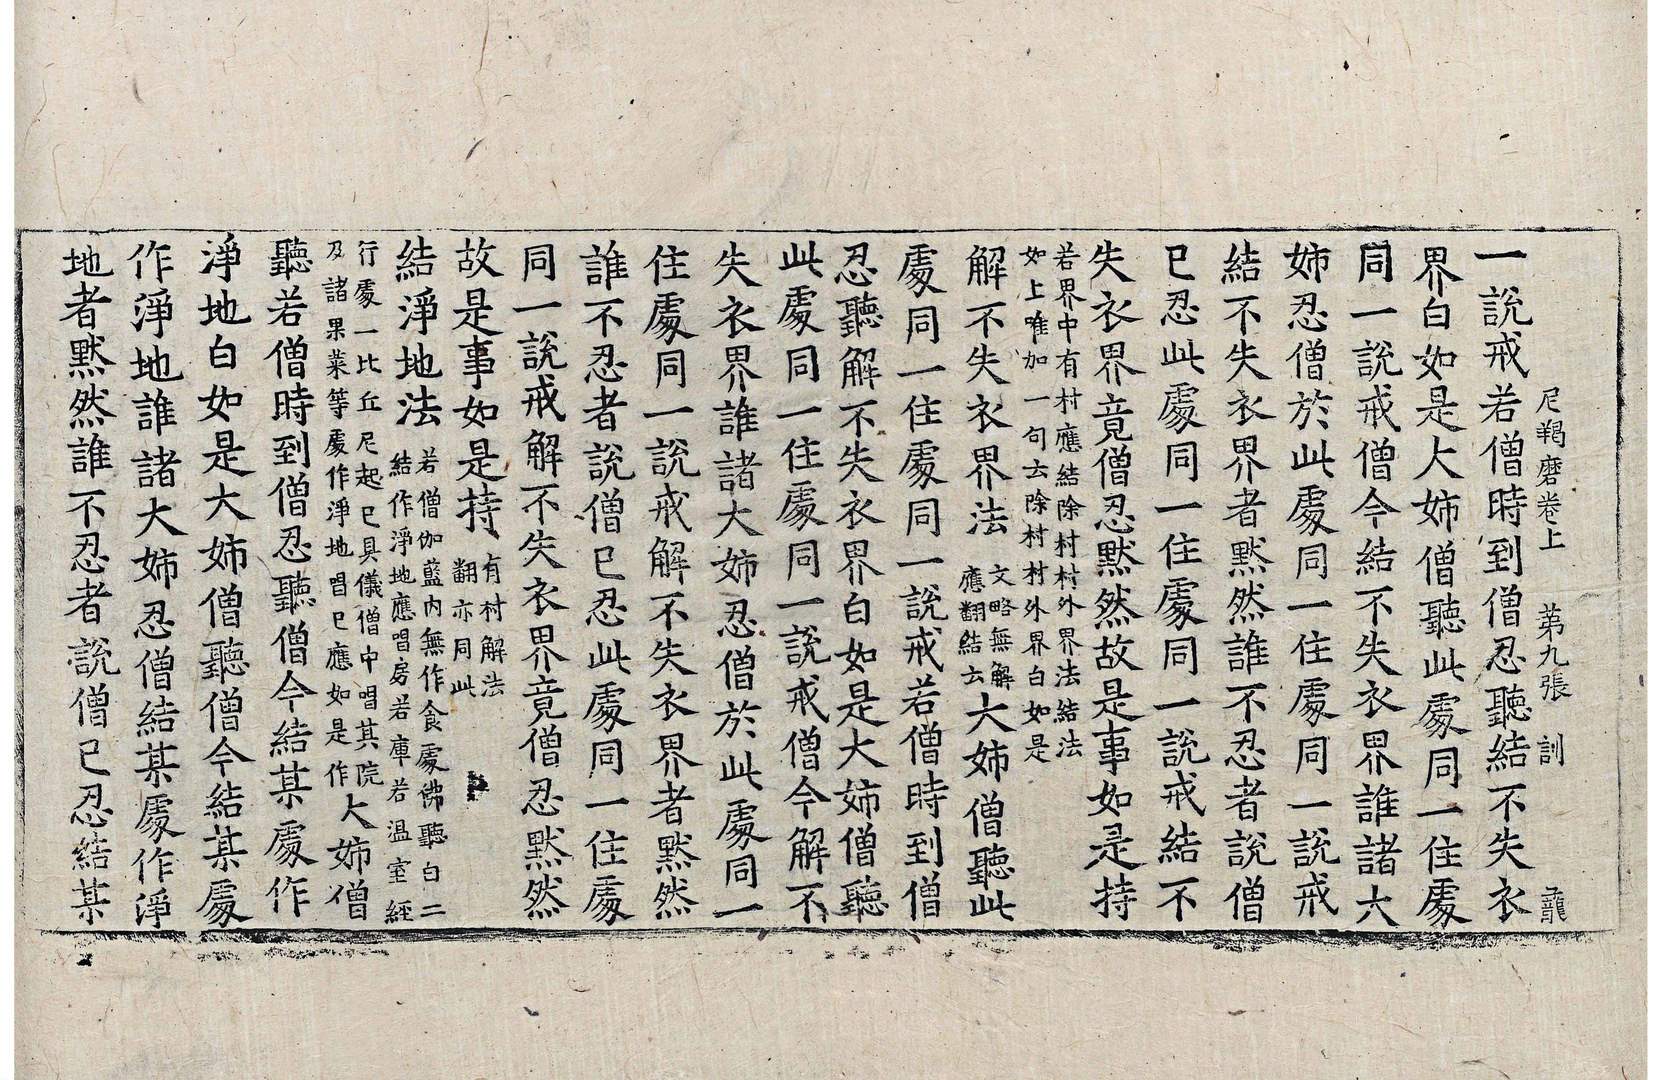 尼羯磨卷上　第九張　訓　龍
一說戒若僧時到僧忍聽結不失衣
界白如是大姉僧聽此處同一住處
同一說戒僧今結不失衣界誰諸大
姉忍僧於此處同一住處同一說戒
結不失衣界者默然誰不忍者說僧
已忍此處同一住處同一說戒結不
失衣界竟僧忍默然故是事如是持
若界中有村應結除村村外界法結法
如上唯加一句去除村村外界白如是
解不失衣界法 文略無解 應翻結云 大姉僧聽此
處同一住處同一說戒若僧時到僧
忍聽解不失衣界白如是大姉僧聽
此處同一住處同一說戒僧今解不
失衣界誰諸大姉忍僧於此處同一
住處同一說戒解不失衣界者默然
誰不忍者說僧已忍此處同一住處
同一說戒解不失衣界竟僧忍默然
故是事如是持 有村解法 翻亦同此
結淨地法 若僧伽藍內無作食處佛聽白二 結作淨地應唱房若庫若溫室經
行處一比丘尼起已具儀僧中唱其院
及諸果菜等處作淨地唱已應如是作 大姉僧
聽若僧時到僧忍聽僧今結某處作
淨地白如是大姉僧聽僧今結某處
作淨地誰諸大姉忍僧結某處作淨
地者默然誰不忍者說僧已忍結某